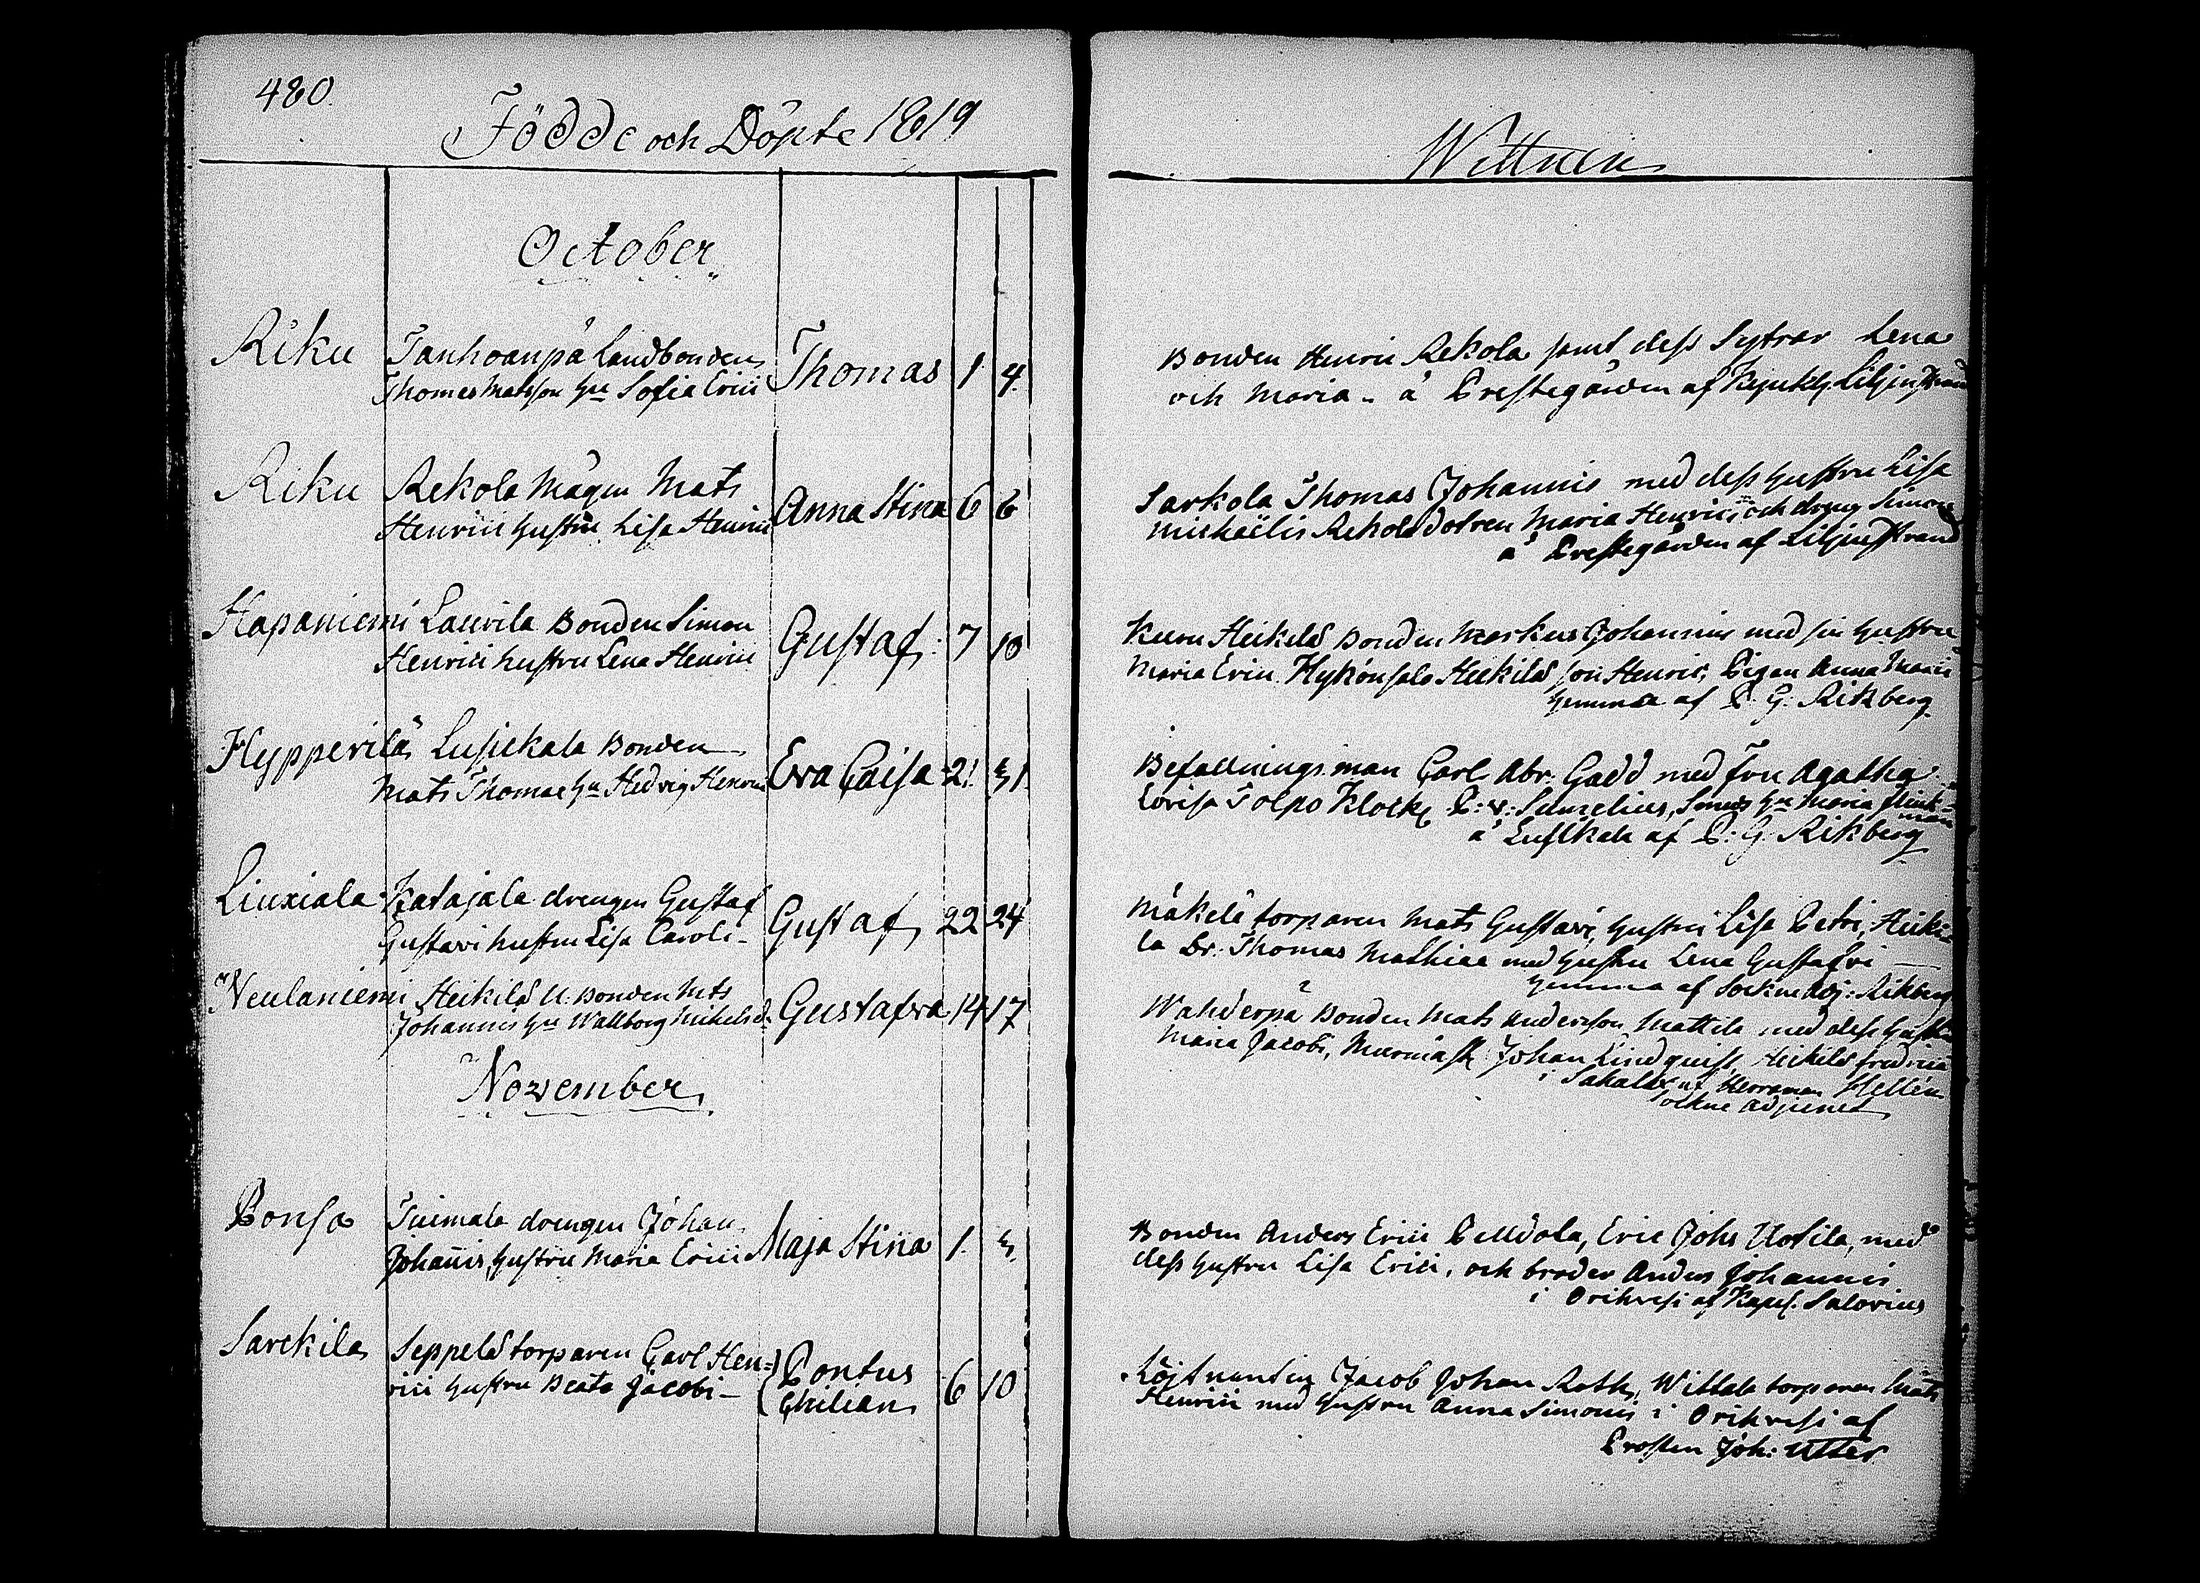 480.
Födde och Döpte 1819
October
Riku Tanhoanpä Landbonden Thomas 1. 4.
Thomas Matsson Hu Sofia Erici
Riku Rekola Mågen Mats Anna Stina 6 6
Henrici hustru Lisa Henrici
Hapaniemi Laurila Bonden Simon Gustaf. 7 10
Henrici hustru Lena Henrici
Hypperilä Bonden Eva Caisa 21. 31.
Mats Thomae Hu Hedvig Henrici
Liuxiala Katajala drengen Gustaf Gustaf 22 24
Gustavi hustru Lisa Caroli
Neulaniemi Heikilä U. Bonden Mts Gustafva 14 17
Johannis Hu Wallborg Michelsd
November
Ponsa Tuimala drengen Johan Maja Stina 1.
Johannis, hustru Maria Erici
Sarckila Seppelä torparen Carl Hen= Pontus 6 10
rici hustru Beata Jacobi Chilian
Wittnen
Bonden Henric Rekola samt dess Systrar Lena
och Maria å Prestegården af Liljenstrand
Sarkola Thomas Johannis med dess hustru Lisa
Michaëlis Rekola dotren Maria Henrici och dreng Simon
å Prestegården af Liljenstrand
Heikilä Bonden Markus Johannis med sin hustru
Maria Erici Hykönsalo Heikilä son Henric, Pigan Anna Maria
hemma af P. G. Rikberg
Befallningsman Carl Abr. Gadd med Fru Agatha
Lovisa Tolpo Klock Hu Maria Flink=
man
å af P: G. Rikberg
Mäkelä torparen Mats Gustavi, hustru Lisa Petri, Heiki=
la Dr. Thomas Mathiae med hustru Lena Gustafvi
hemma af Sockne Adj: Rikberg
Wahderpä Bonden Mats Andersson Mattila med dess hustru
Maria Jacobi, Johan Lindquist, Heikilä Fredrica
i Sahalax af Herreman Hellén
Sockne Adjunct
Bonden Anders Erici Pelldola, Eric Johs Uotila, med
dess hustru Lisa Erici, och broder Anders Johannis
i Orihvesi af Kapel. Salovius
Jacob Johan Roth, Wittala torparen Mats
Henrici med hustru Anna Simonis i Orihvesi af
Prosten Joh: Utter